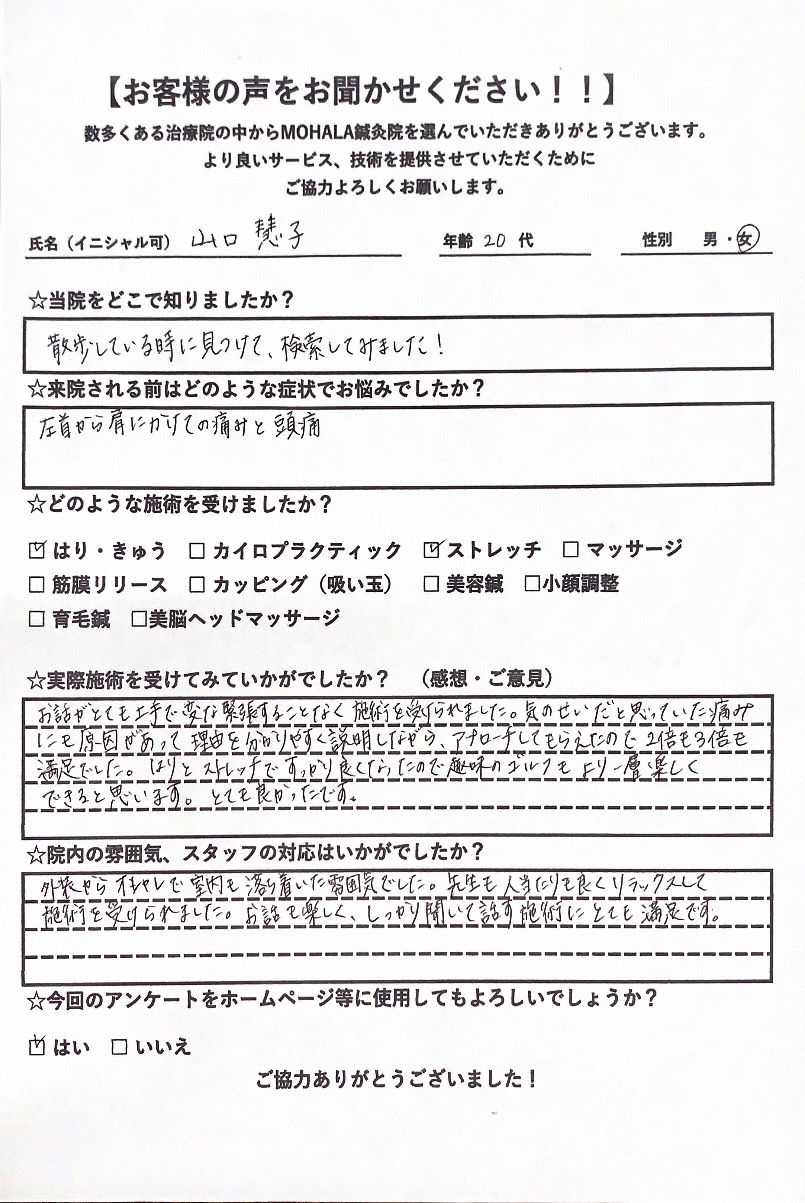 【お客様の声をお聞かせください！！】
数多くある治療院の中からMOHALA鍼灸院を選んでいただきありがとうございます。
より良いサービス、技術を提供させていただくために
ご協力よろしくお願いします。
氏名（イニシャル可） 山口 慧子 年齢 20 代 性別 男・女
☆当院をどこで知りましたか？
散歩している時に見つけて、検索してみました！
☆来院される前はどのような症状でお悩みでしたか？
左首から肩にかけての痛みと頭痛
☆どのような施術を受けましたか？
☑ はり・きゅう □ カイロプラクティック ☑ストレッチ □ マッサージ
□ 筋膜リリース □ カッピング（吸い玉） □ 美容鍼 □小顔調整
□ 育毛鍼 □美脳ヘッドマッサージ
☆実際施術を受けてみていかがでしたか？ （感想・ご意見）
お話がとても上手で変な緊張することなく施術を受けられました。気のせいだと思っていた痛み
にも原因があって理由を分かりやすく説明しながら、アプローチしてもらえたので2倍も3倍も
満足でした。はりとストレッチですっかり良くなったので趣味のゴルフもより一層楽しく
できると思います。とても良かったです。
☆院内の雰囲気、スタッフの対応はいかがでしたか？
外装からオシャレで室内も落ち着いた雰囲気でした。先生も人当たりも良くリラックスして
施術を受けられました。お話も楽しく、しっかり聞いて話す施術にとても満足です。
☆今回のアンケートをホームページ等に使用してもよろしいでしょうか？
☑ はい □ いいえ
ご協力ありがとうございました！